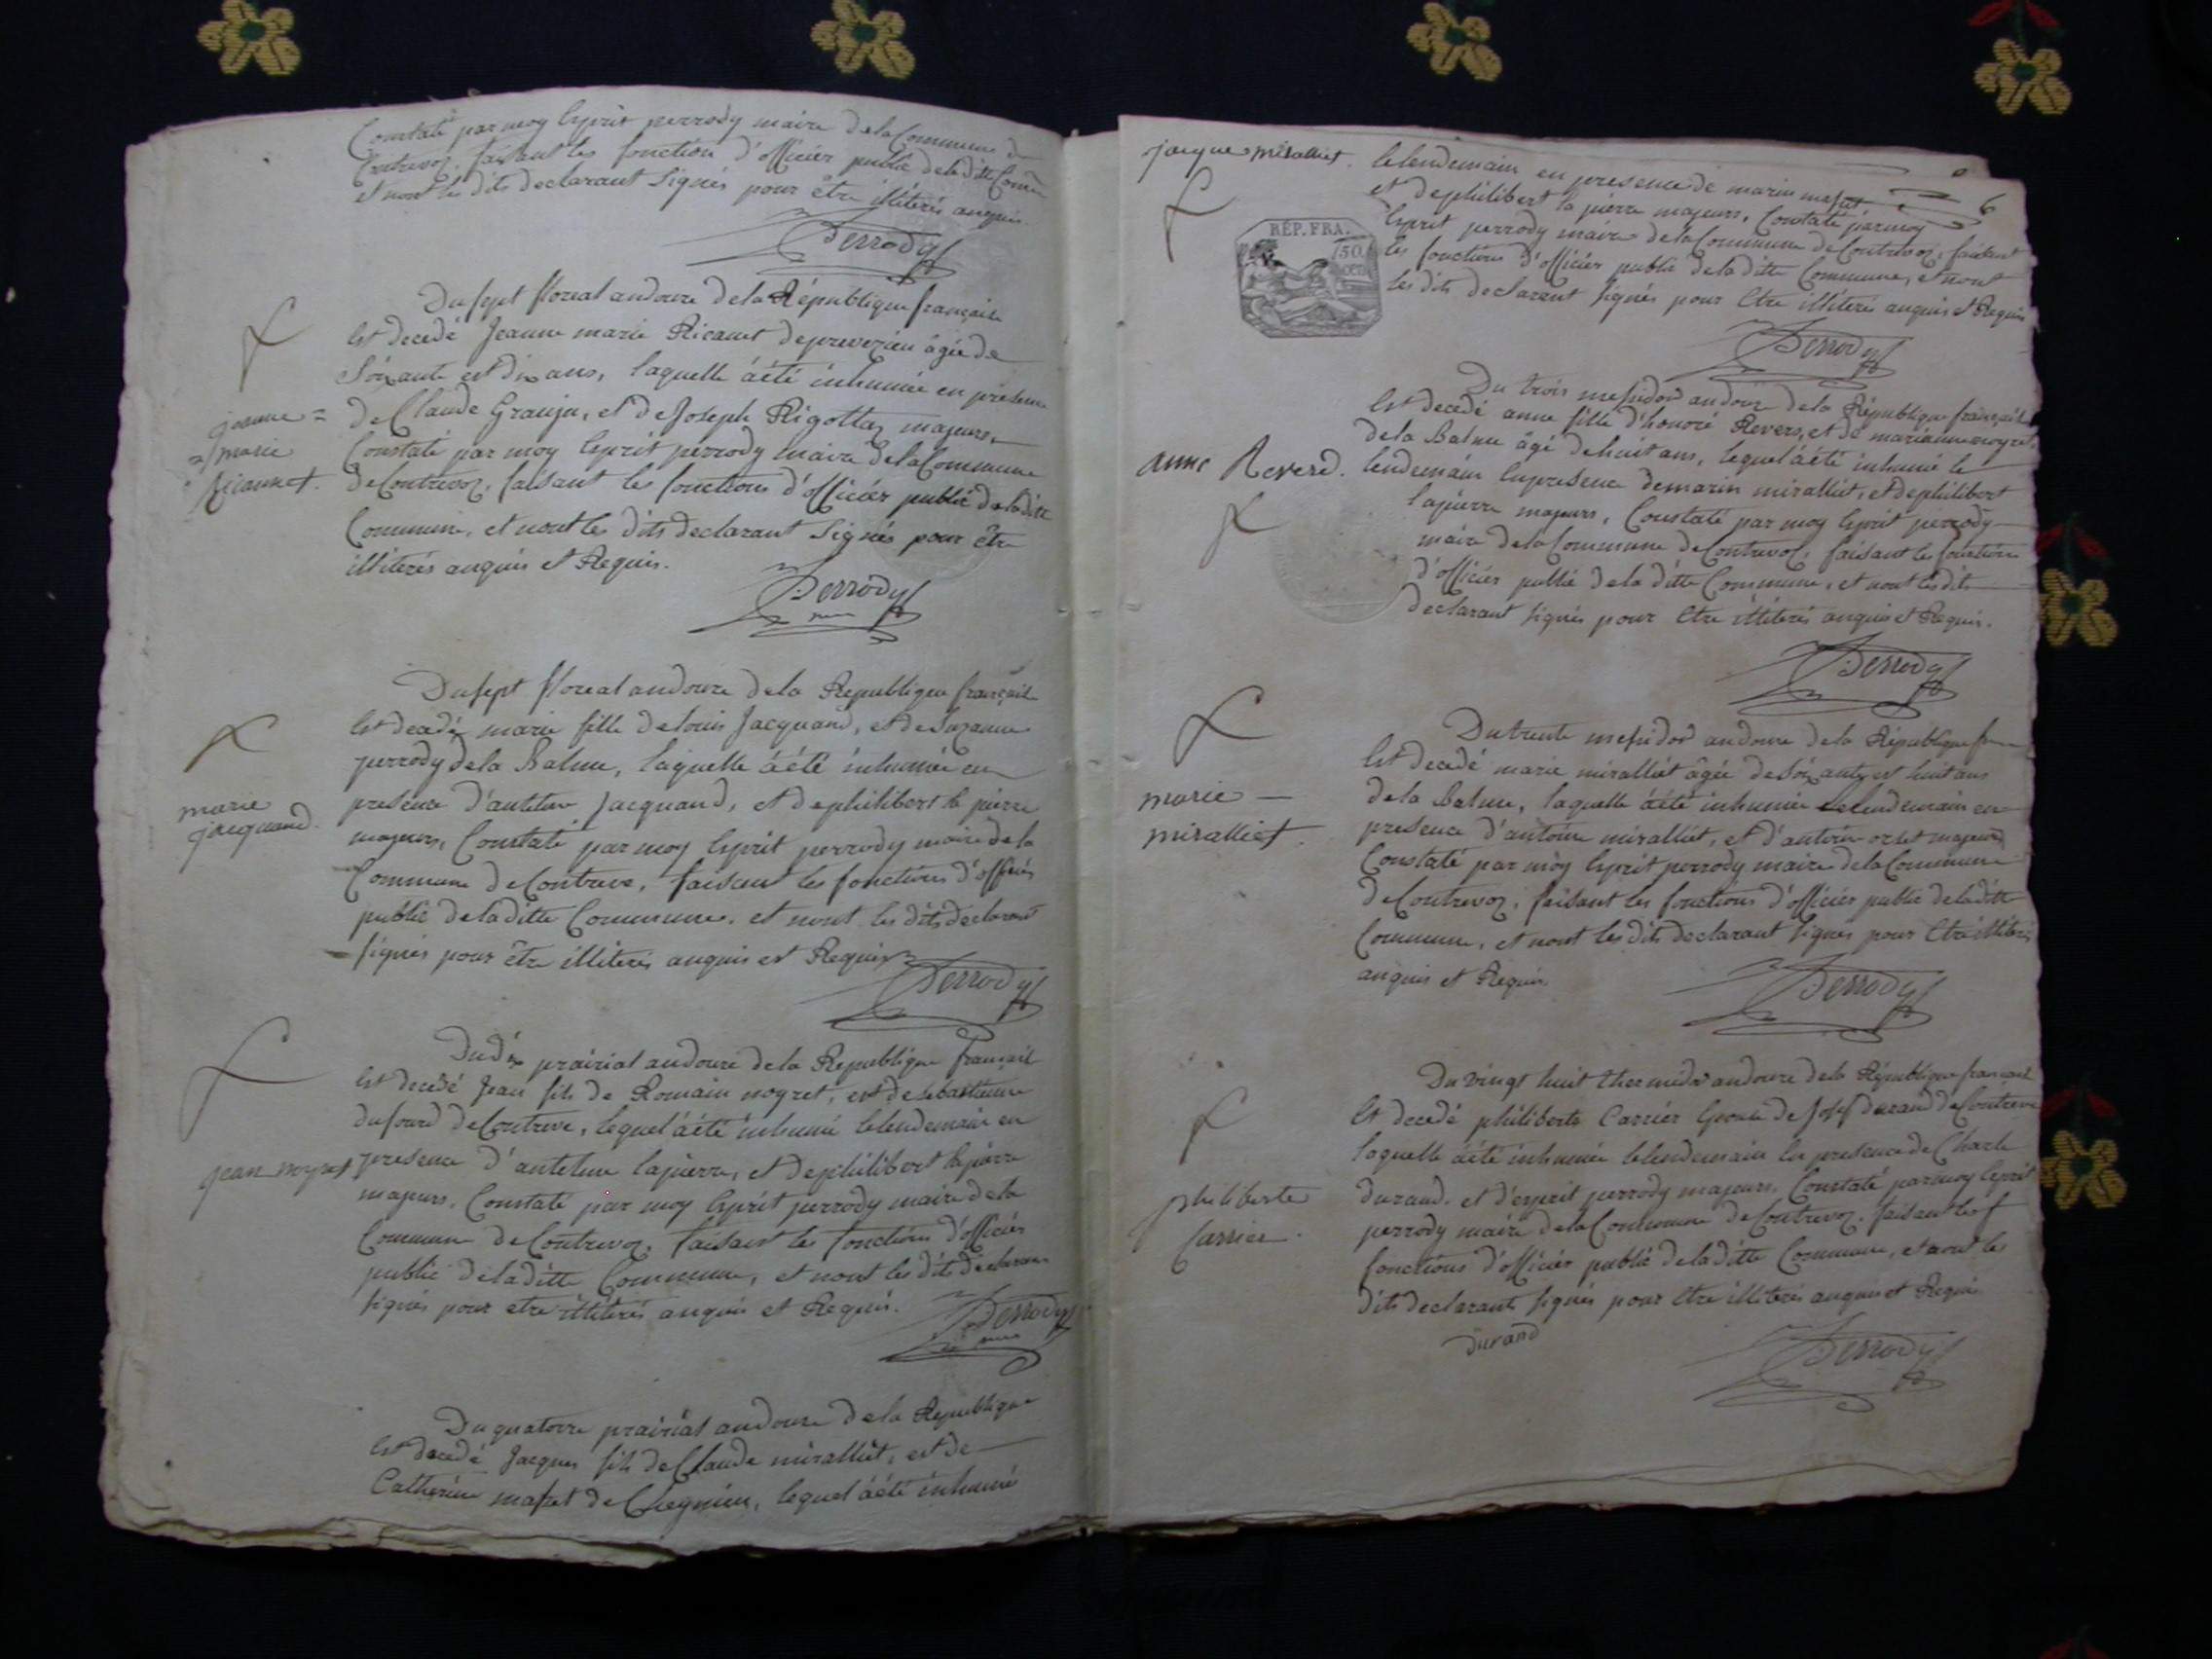 Constaté par moy Esprit perrody maire de la Commune de
Contrevoz, faisant les fonction d'officier public de la ditte Comm
et nont lé dits declarant Signés pour être illiterés anquis
Perrody
Du sept floreal an douze de la République française
Est decedé Jeanne marie Ricanet de preveyzieu âgée de
Soixante est dix ans, laquelle áété inhumée en présence
de Claude Granju, et de Joseph Rigottaz majeurs,
Constaté par moy Esprit perrody maire de la Commune
de Contrevoz, faisant les fonctions d'officiér public de la ditte
Commune, et nont les dits declarant Signés pour être
illiterés anquis et Requis.
jeanne =
= marie
Ricannet.
Perrody
Du sept floreal an douze de la République française
Est decedé marie fille de louis Jacquand, et de Suzanne
perrody de la Balme, laquelle áété inhumée en
presence d'antelme Jacquand, et de philibert la pierre
majeurs, Constaté par moy Esprit perrody maire de la
Commune de Contreve, faisant les fonctions d'officiér
public de la ditte Commune, et nont les dits declarant
signés pour être illiterés anquis et Requis
marie
jacquand.
Perrody
Du dix prairial an douze de la République français
Est decedé Jean fils de Romain noyret, est de sebastienne
dufourd de Contreve, lequel áété inhumé le lendemain en
presence d'antelme lapierre, et de philibert lapierre
majeurs, Constaté par moy Esprit perrody maire de la
Commune de Contrevoz, faisant les fonctions d'officiér
public de la ditte Commune, et nont les dits declarant
signés pour etre illiterés anquis et Requis.
jean noyret
Perrody
Du quatorze prairial an douze de la République
Est decedé Jacques fils de Claude miralliet, est de
Catherine masset de Chegnieu, lequel áété inhumé
jacque miralliet.
6
le lendemain en presence de marin masset
et de philibert la pierre majeurs, Constaté par moy
Esprit perrody maire de la Commune de Contrevoz, faisant
les fonctions d'officiér public de la ditte Commune, et nont
les dits declarant signés pour Etre illiterés anquis et Requis
RÉP. FRA.
Perrody
Du trois messidor an douze de la République français
Est decedé anne fille d'honoré Revers, et de marianne noyret
de la Balme âgé de huit ans, lequel áété inhumé le
lendemain En presence de marin miralliet, et de philibert
lapierre majeurs, Constaté par moy Esprit perrody
maire de la Commune de Contrevoz, faisant les fonctions
d'officiér public de la ditte Commune, et nont les dits
declarant signés pour Etre illiterés anquis et Requis.
anne Reverd.
Perrody
Du trente messidor an douze de la République
Est decedé marie miralliet âgée de soixante est huit ans
de la Balme, laquelle áété inhumée le lendemain en
presence d'antoine miralliet, et d'antoine orset majeurs
Constaté par moy Esprit perrody maire de la Commune
de Contrevoz, faisant les fonctions d'officiér public de la ditte
Commune, et nont les dits declarant signés pour Etre illiterés
anquis et Requis
marie
miralliet.
Perrody
Du vingt huit thermidor an douze de la République français
Est decedé philiberte Carriér Epouse de Josef durand de Contreve
laquelle áété inhumée le lendemain En presence de Charle
durand, et d'esprit perrody majeurs, Constaté par moy Esprit
perrody maire de la Commune de Contrevoz, faisant les
fonctions d'officiér public de la ditte Commune, et nont les
dits declarants signés pour Etre illiterés anquis et Requis
philiberte
Carrier.
durand
Perrody